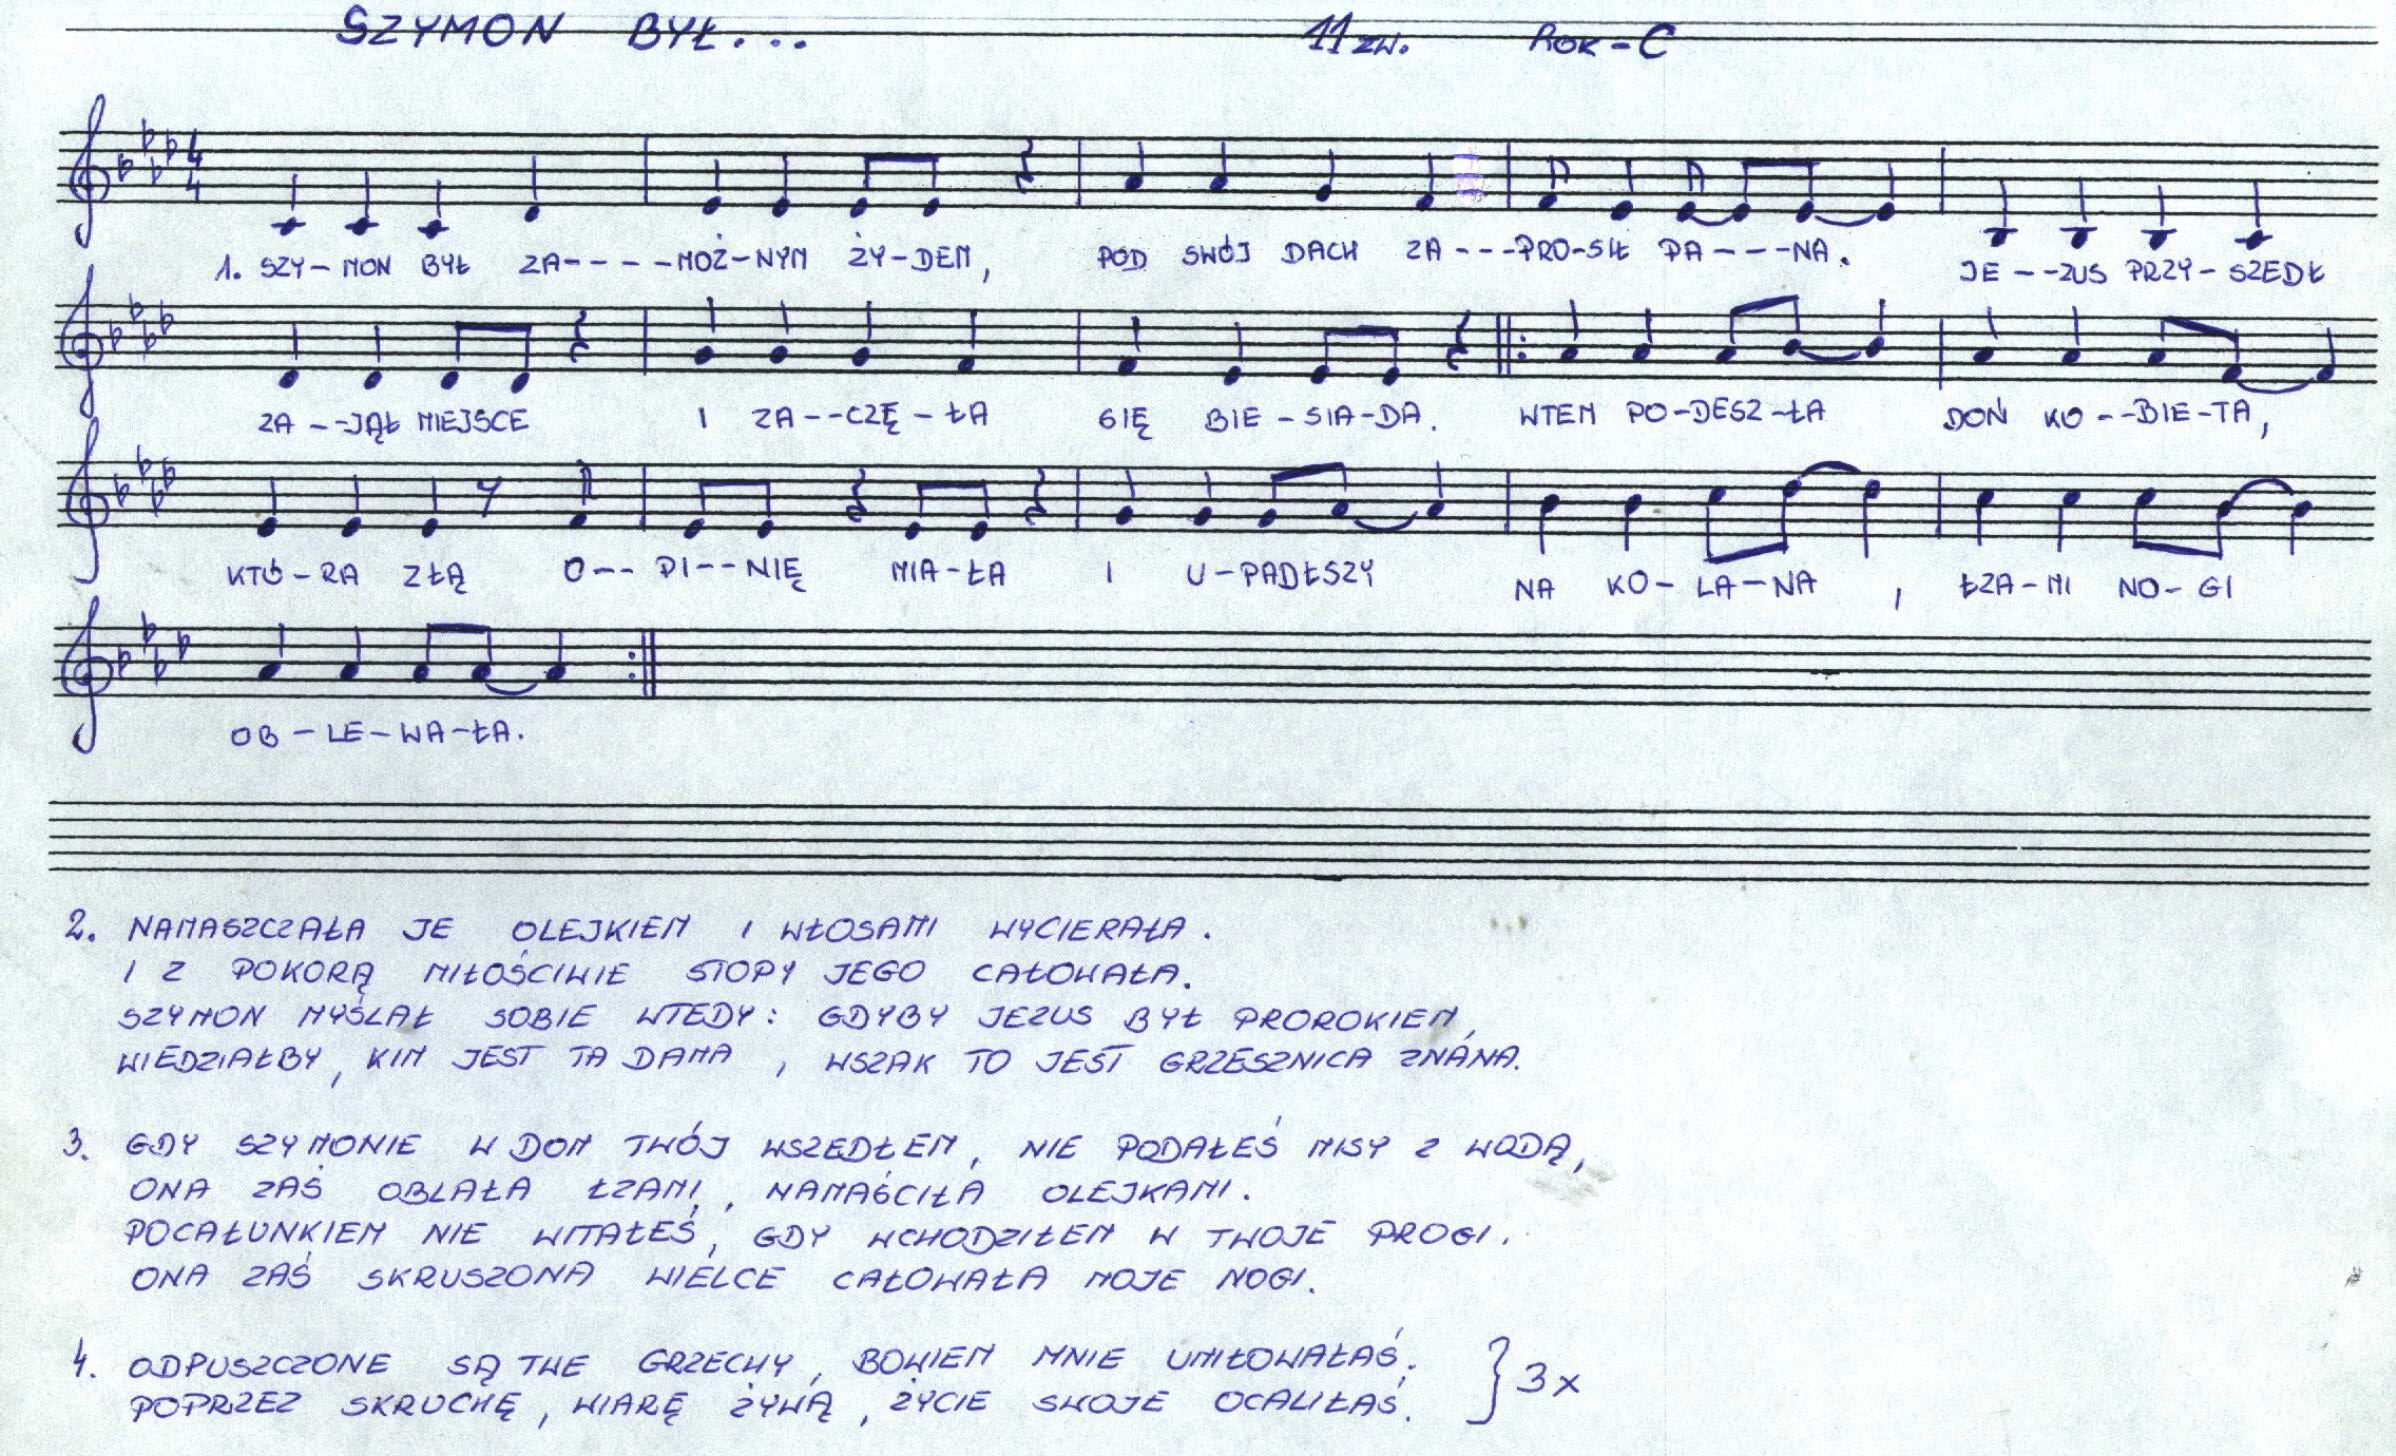 SZYMON BYŁ... 11 ZW. ROK-C
4
4
1. SZY-MON BYŁ ZA-----MOŻ-NYM ŻY-DEM, POD SWÓJ DACH ZA---PRO-SIŁ PA---NA. JE--ZUS PRZY-SZEDŁ
ZA--JĄŁ MIEJSCE I ZA--CZĘ-ŁA SIĘ BIE-SIA-DA. WTEM PO-DESZ-ŁA DOŃ KO--BIE-TA,
KTÓ-RA ZŁĄ O--PI--NIĘ MIA-ŁA I U-PADŁSZY NA KO-LA-NA, ŁZA-MI NO-GI
OB-LE-WA-ŁA.
2. NAMASZCZAŁA JE OLEJKIEM I WŁOSAMI WYCIERAŁA.
I Z POKORĄ MIŁOŚCIWIE STOPY JEGO CAŁOWAŁA.
SZYMON MYŚLAŁ SOBIE WTEDY: GDYBY JEZUS BYŁ PROROKIEM,
WIEDZIAŁBY, KIM JEST TA DAMA, WSZAK TO JEST GRZESZNICA ZNANA.
3. GDY SZYMONIE W DOM TWÓJ WSZEDŁEM, NIE PODAŁEŚ MISY Z WODĄ,
ONA ZAŚ OBLAŁA ŁZAMI, NAMAŚCIŁA OLEJKAMI.
POCAŁUNKIEM NIE WITAŁEŚ, GDY WCHODZIŁEM W TWOJE PROGI.
ONA ZAŚ SKRUSZONA WIELCE CAŁOWAŁA MOJE NOGI.
4. ODPUSZCZONE SĄ TWE GRZECHY, BOWIEM MNIE UMIŁOWAŁAŚ.
POPRZEZ SKRUCHĘ, WIARĘ ŻYWĄ, ŻYCIE SWOJE OCALIŁAŚ. } 3x